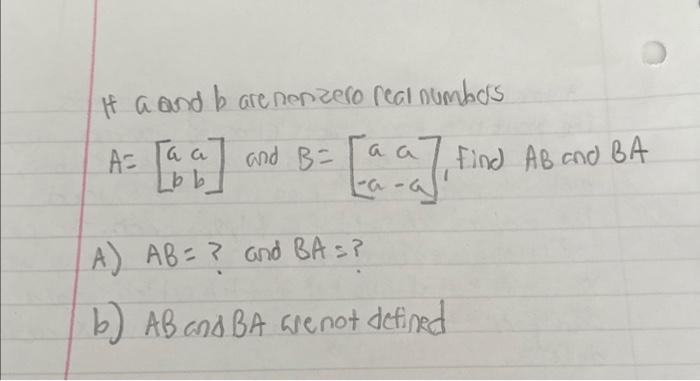 If a and b are nonzero real numbers
A= [a a b b] and B= [a a -a -a], Find AB and BA
A) AB= ? and BA=?
b) AB and BA are not defined